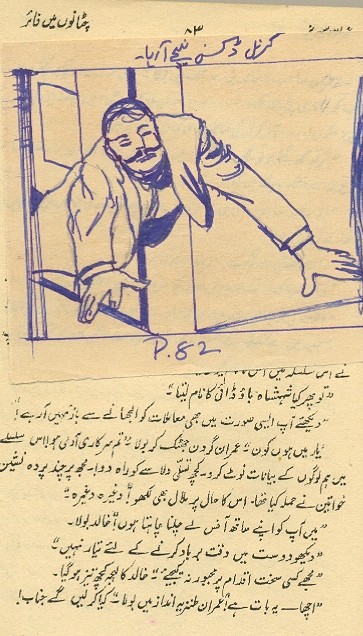 چٹانوں میں فائر
۸۳
کرنل ڈکسن نیچے آ رہا۔
P.82
نے اس سلسلہ میں اس
”تو پھر کیا شہنشاہ باؤ ڈائی کا نام لیتا۔“
”دیکھئے آپ ایسی صورت میں بھی معاملات کو الجھانے سے باز نہیں آ رہے!
یار میں ہوں کون“ عمران گردن جھٹک کر بولا ”تم سرکاری آدمی ہو! اس سلسلے
میں ہم لوگوں کے بیانات نوٹ کرو۔ کچھ تسلی دلاسے کو راہ دو!۔ مجھ پر چند پردہ نشین
خواتین نے حملہ کیا تھا۔ اس کا حال پر ملال بھی لکھو! وغیرہ وغیرہ“
”میں آپ کو اپنے ساتھ آفس لے جانا چاہتا ہوں!“ خالد بولا۔
”دیکھو دوست میں وقت برباد کرنے کے لئے تیار نہیں“
”مجھے کسی سخت اقدام پر مجبور نہ کیجئے“ خالد کا لہجہ کچھ تیز ہو گیا۔
”اچھا۔ یہ بات ہے!“ عمران طنزیہ انداز میں بولا ”کیا کر لیں گے جناب!